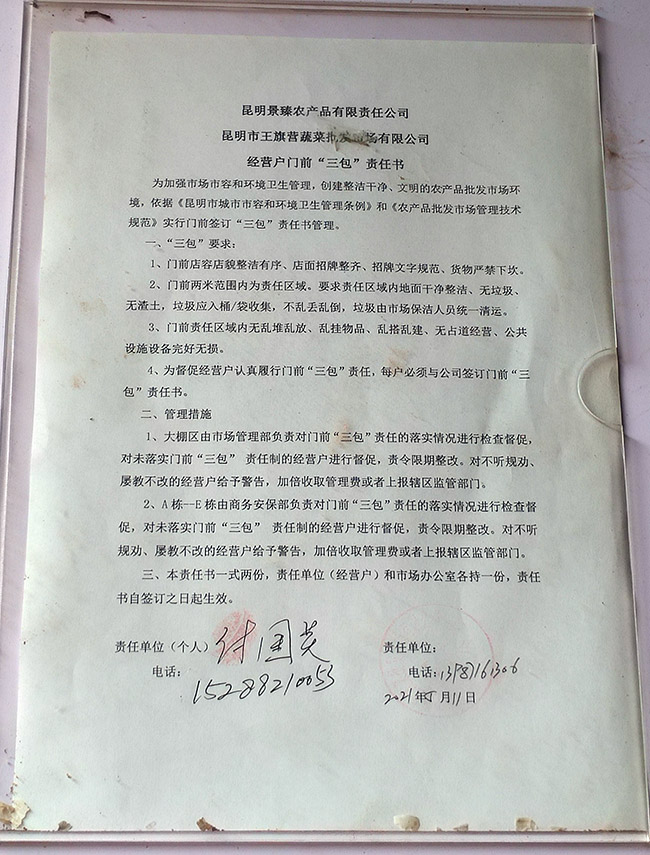 昆明景臻农产品有限责任公司
昆明市王旗营蔬菜批发市场有限公司
经营户门前“三包”责任书
为加强市场市容和环境卫生管理，创建整洁干净、文明的农产品批发市场环
境，依据《昆明市城市市容和环境卫生管理条例》和《农产品批发市场管理技术
规范》实行门前签订“三包”责任书管理。
一、“三包”要求：
1、门前店容店貌整洁有序、店面招牌整齐、招牌文字规范、货物严禁下坎。
2、门前两米范围内为责任区域。要求责任区域内地面干净整洁、无垃圾、
无渣土，垃圾应入桶/袋收集，不乱丢乱倒，垃圾由市场保洁人员统一清运。
3、门前责任区域内无乱堆乱放、乱挂物品、乱搭乱建、无占道经营、公共
设施设备完好无损。
4、为督促经营户认真履行门前“三包”责任，每户必须与公司签订门前“三
包”责任书。
二、管理措施
1、大棚区由市场管理部负责对门前“三包”责任的落实情况进行检查督促，
对未落实门前“三包” 责任制的经营户进行督促，责令限期整改。对不听规劝、
屡教不改的经营户给予警告，加倍收取管理费或者上报辖区监管部门。
2、A 栋--E 栋由商务安保部负责对门前“三包”责任的落实情况进行检查督
促，对未落实门前“三包” 责任制的经营户进行督促，责令限期整改。对不听
规劝、屡教不改的经营户给予警告，加倍收取管理费或者上报辖区监管部门。
三、本责任书一式两份，责任单位（经营户）和市场办公室各持一份，责任
书自签订之日起生效。
责任单位（个人） 付国炎 责任单位：
电话：15288210053 电话：
2021年5月11日